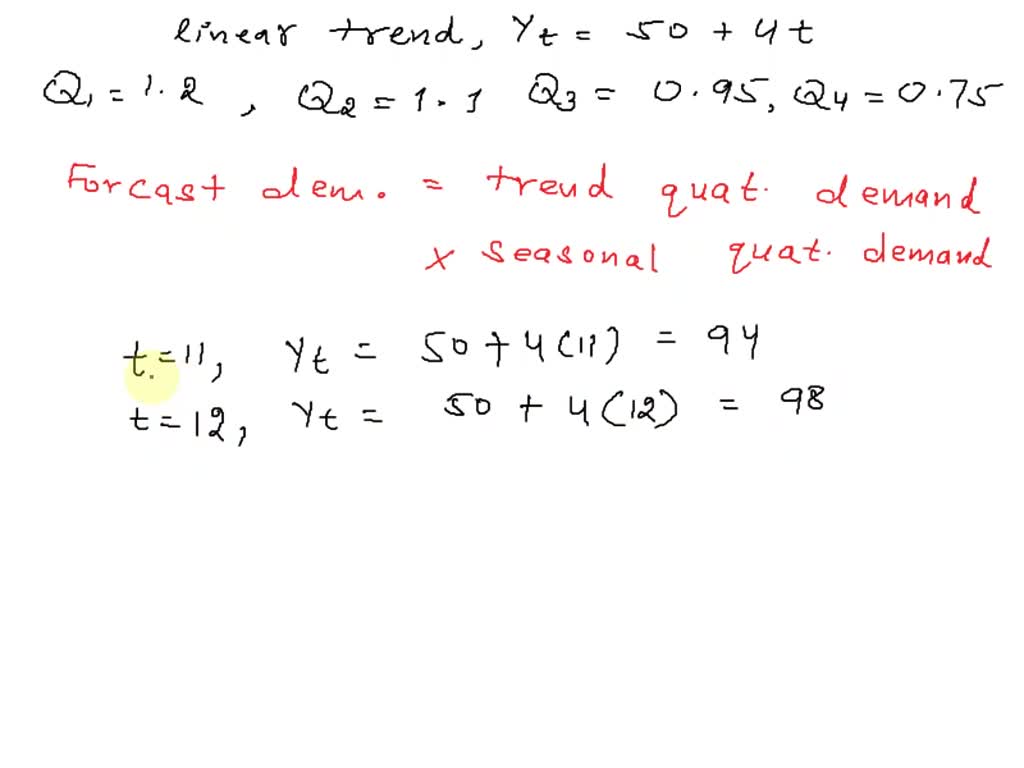 linear trend, Yt = 50 + 4t
Q1 = 1.2 , Q2 = 1.1 Q3 = 0.95, Q4 = 0.75
Forcast dem. = trend quat. demand
x seasonal quat. demand
t=11, Yt = 50 + 4(11) = 94
t=12, Yt = 50 + 4(12) = 98